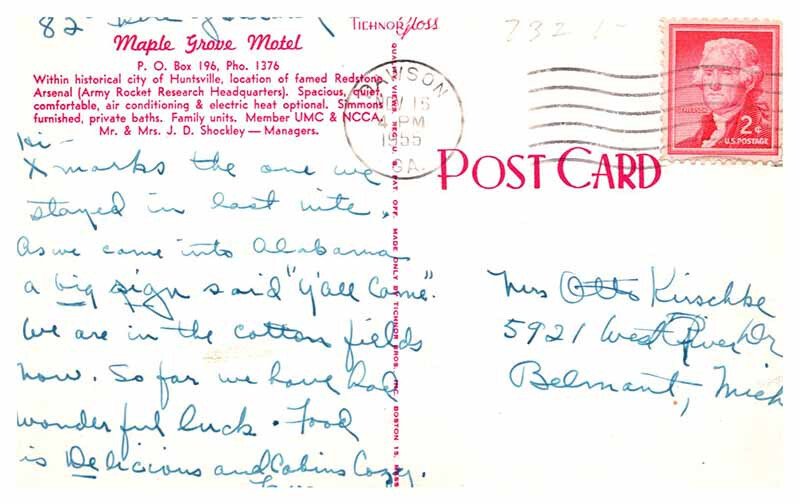 82
TICHNOR Gloss
732 1-
Maple Grove Motel
P. O. Box 196, Pho. 1376
Within historical city of Huntsville, location of famed Redstone
Arsenal (Army Rocket Research Headquarters). Spacious, quiet,
comfortable, air conditioning & electric heat optional. Simmons
furnished, private baths. Family units. Member UMC & NCCA.
Mr. & Mrs. J. D. Shockley — Managers.
Hi -
X marks the one we
stayed in last nite.
As we came into Alabama
a big sign said "Y'all Come".
We are in the cotton fields
now. So far we have had
wonderful luck. Food
is Delicious and Cabins Cozy.
QUALITY VIEWS, REG. U. S. PAT. OFF. MADE ONLY BY TICHNOR BROS. INC. BOSTON 15, MASS
DAWSON
NOV 16
4 PM
1955
GA.
2¢
U.S. POSTAGE
POST CARD
Mrs Otto Kirschke
5921 West River Dr
Belmont, Mich